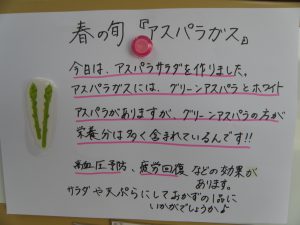 春の旬『アスパラガス』
今日は、アスパラサラダを作りました。
アスパラガスには、グリーンアスパラとホワイト
アスパラがありますが、グリーンアスパラの方が
栄養分は多く含まれているんです!!
高血圧予防、疲労回復などの効果が
あります。
サラダや天ぷらにしておかずの1品に
いかがでしょうか♪